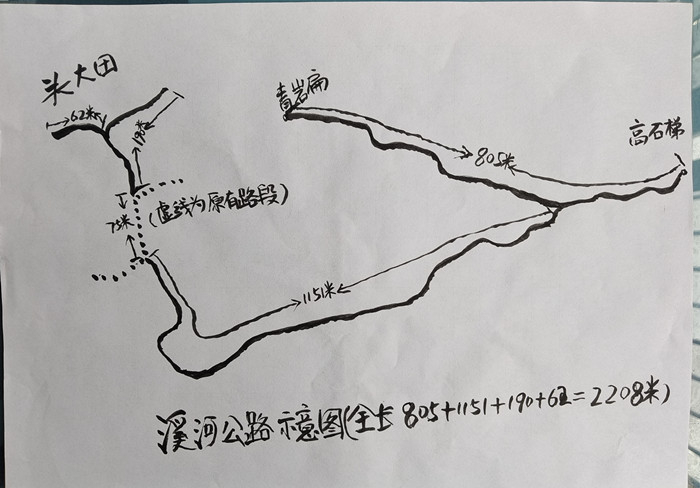 米大田
62米
190米
75米
(虚线为原有路段)
青岩扁
805米
高石梯
1151米
溪河公路示意图(全长 805+1151+190+62=2208米)